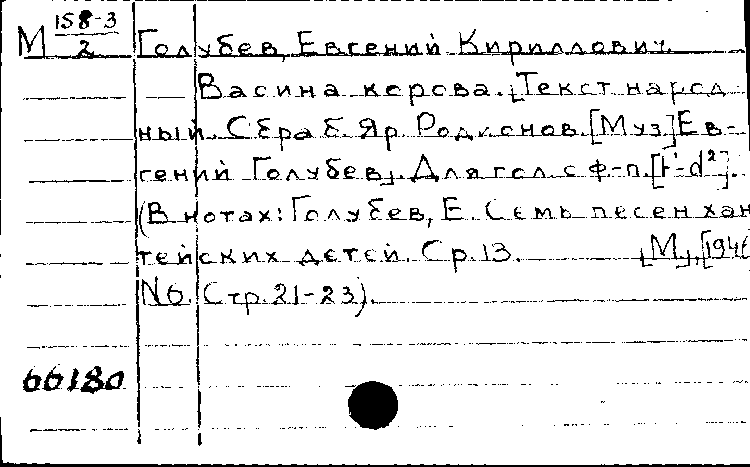 М 158-3/2 Голубев, Евгений Кириллович.
Васина корова. [Текст народ-
ный. Обраб. Яр. Родионов. [Муз] Ев-
гений Голубев]. Для гол. с ф-п. d²].
(В нотах: Голубев, Е. Семь песен хан-
тейских детей. Ср. 13. [М.], [194
N6. Стр. 21-23).
66180